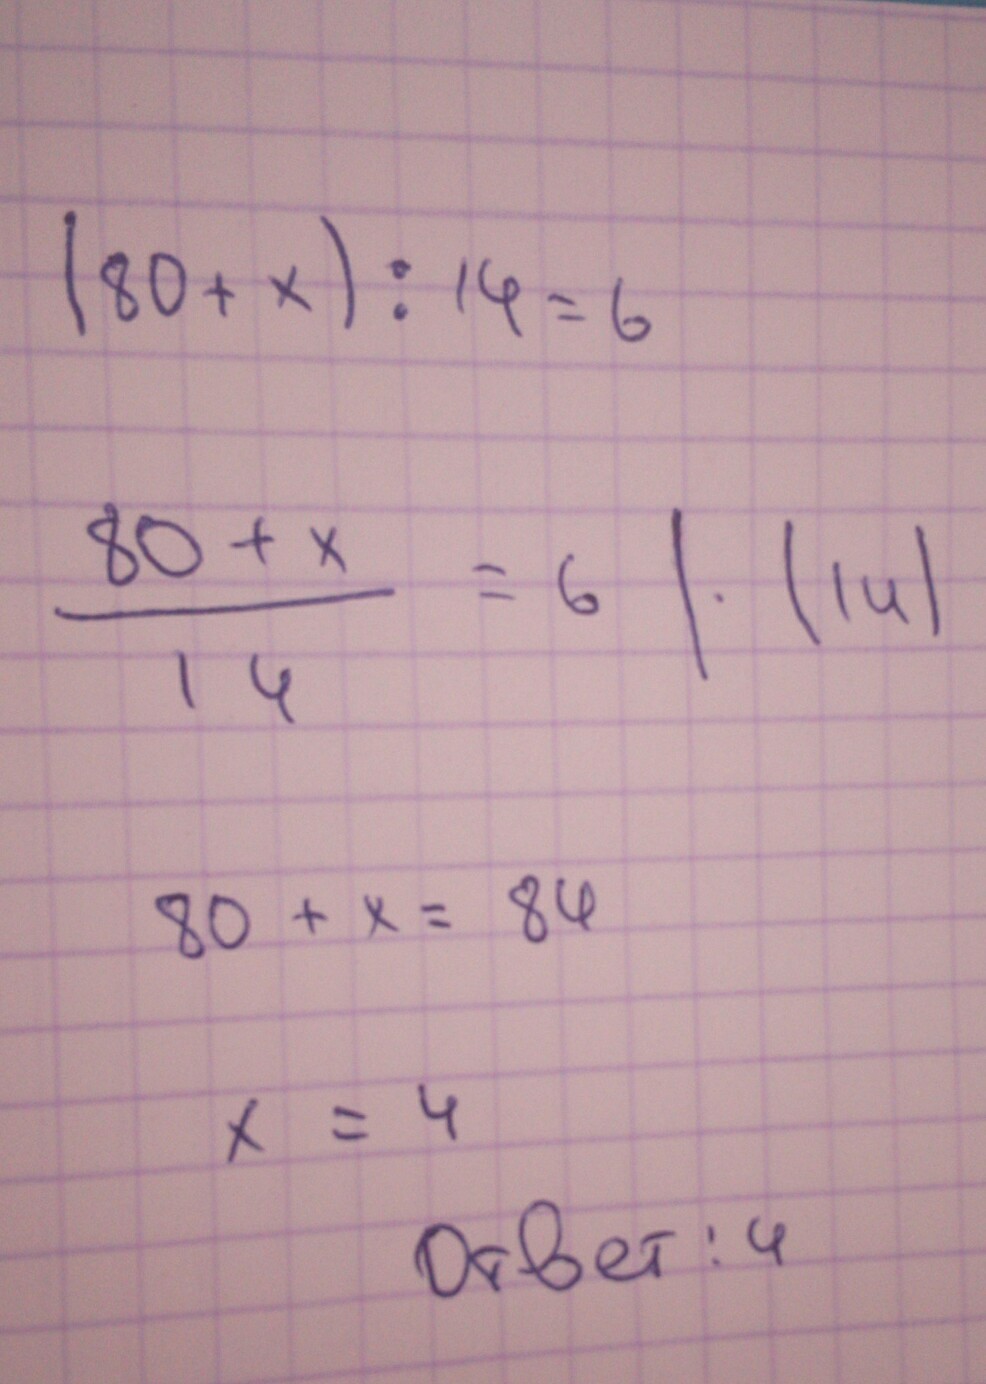 (80 + x) : 14 = 6
80 + x
14
= 6 | · (14)
80 + x = 84
x = 4
Ответ: 4